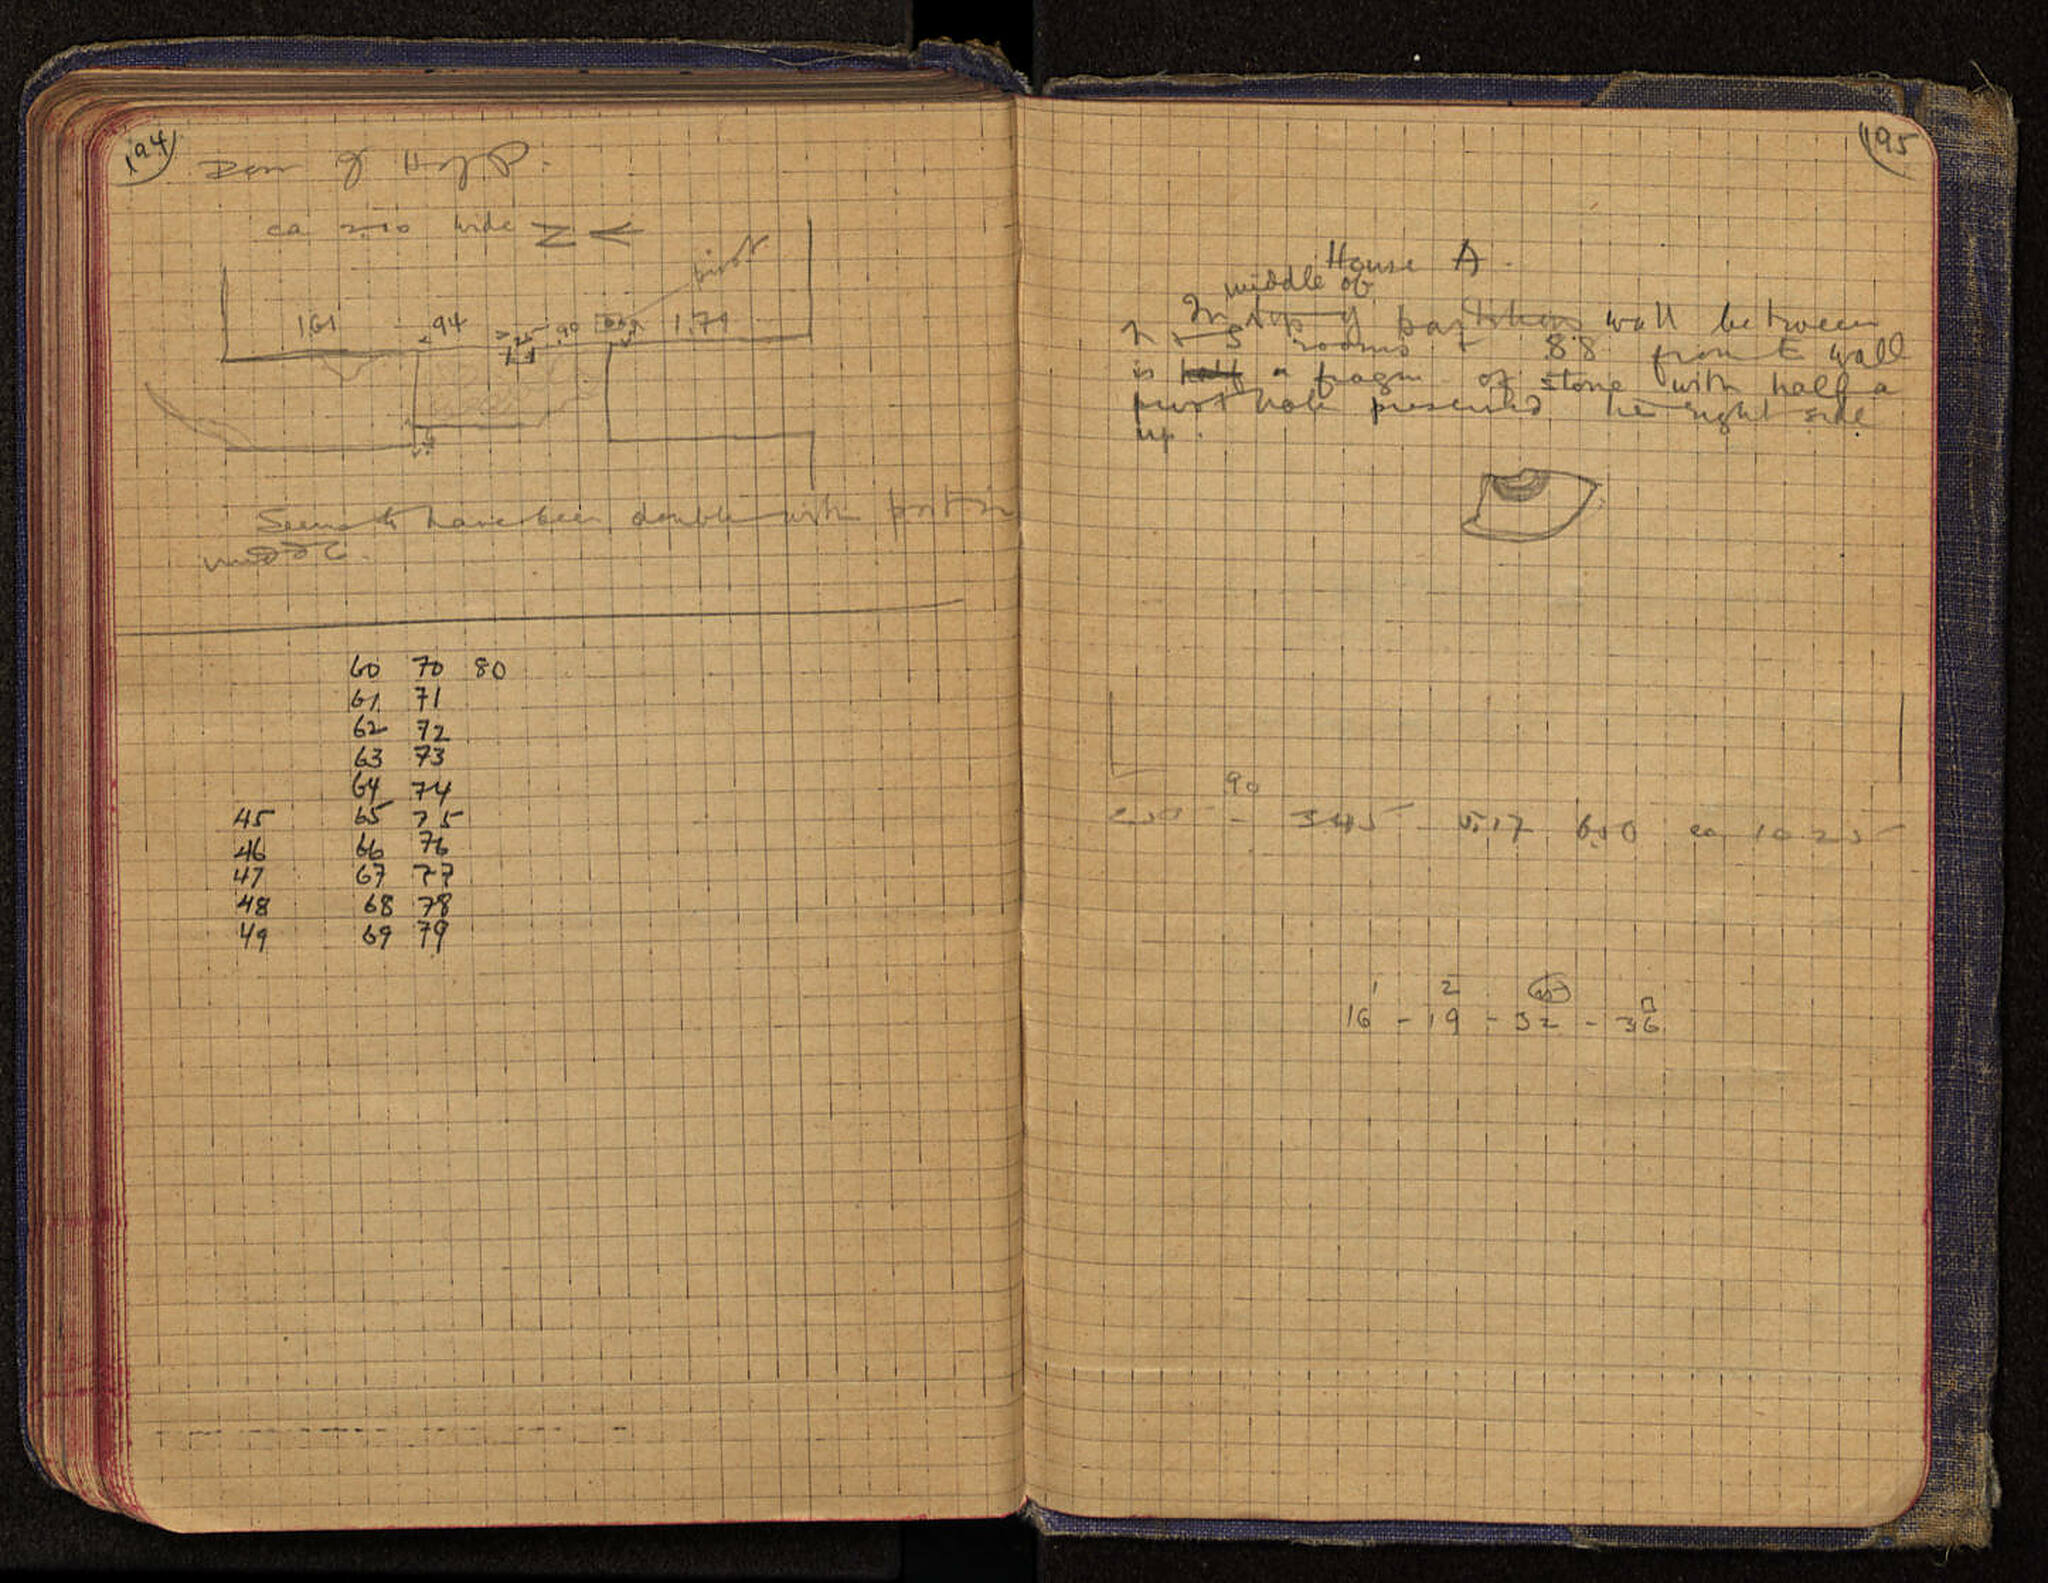 194
Door of H of P.
ca 2.10 wide
pivot
1.61 .94 .90 1.71
Seems to have been double with post in
middle.
60 70 80
61 71
62 72
63 73
64 74
45 65 75
46 66 76
47 67 77
48 68 78
49 69 79
195
House A.
middle of
In top of partition wall between
N + S rooms + 88 from E wall
is half a fragm. of stone with half a
pivot hole preserved the right side
up.
90
3.45 5.17 6.50 ca 10.25
1 2
16 - 19 - 32 - 36